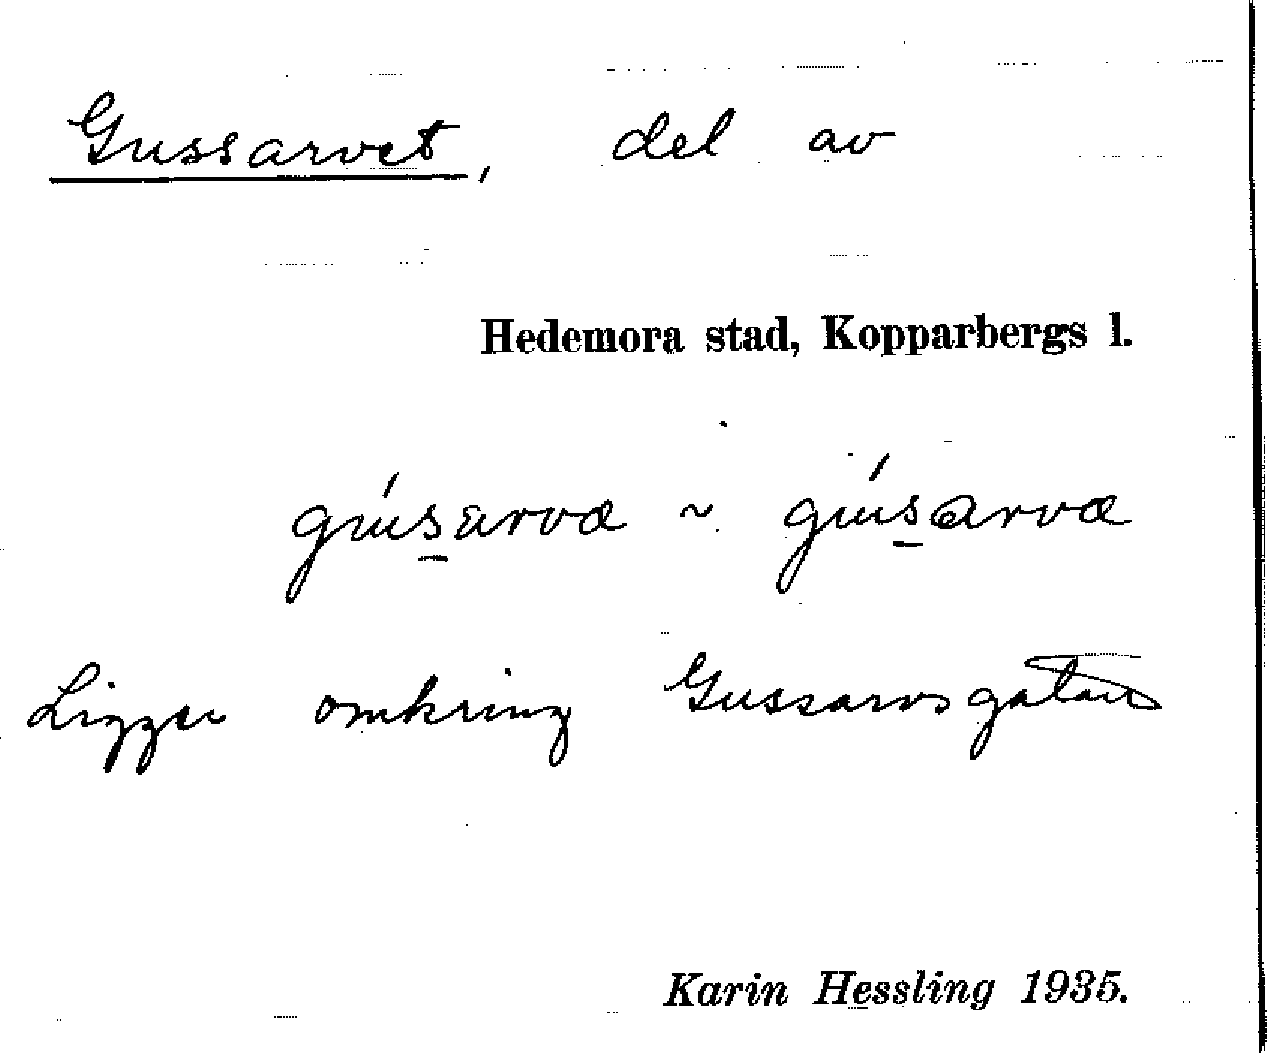 Gussarvet, del av
Hedemora stad, Kopparbergs l.
gúsarva ~ gúsarva
Ligger omkring Gussarvsgatan
Karin Hessling 1935.